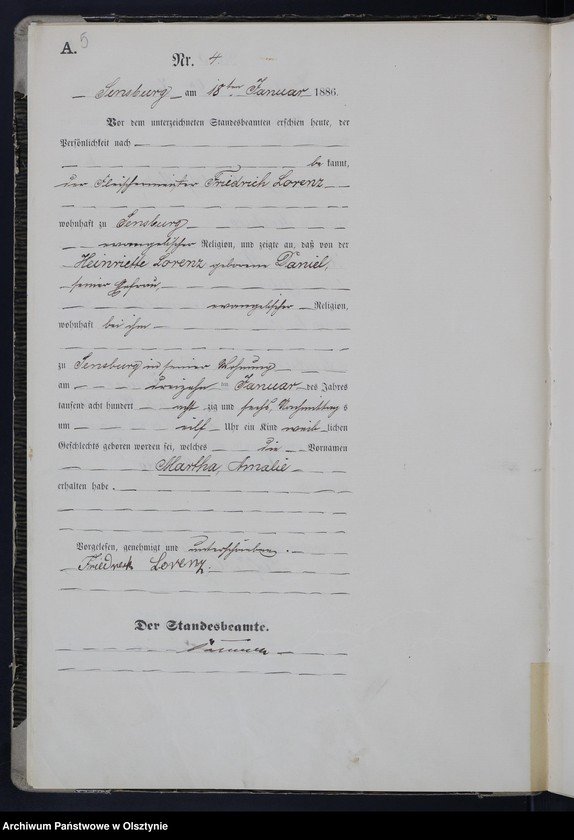 A. 5
Nr. 4
Sensburg am 18ten Januar 1886.
Vor dem unterzeichneten Standesbeamten erschien heute, der
Persönlichkeit nach
be kannt,
der Fleischermeister Friedrich Lorenz
wohnhaft zu Sensburg
evangelischer Religion, und zeigte an, daß von der
Heinriette Lorenz geborene Daniel,
seiner Ehefrau,
evangelischer Religion,
wohnhaft bei ihm
zu Sensburg in seiner Wohnung
am dreizehn ten Januar des Jahres
tausend acht hundert acht zig und sechs, Nachmittag s
um eilf Uhr ein Kind weib lichen
Geschlechts geboren worden sei, welches die Vornamen
Martha, Amalie
erhalten habe.
Vorgelesen, genehmigt und unterschrieben.
Friedrich Lorenz.
Der Standesbeamte.
Archiwum Państwowe w Olsztynie